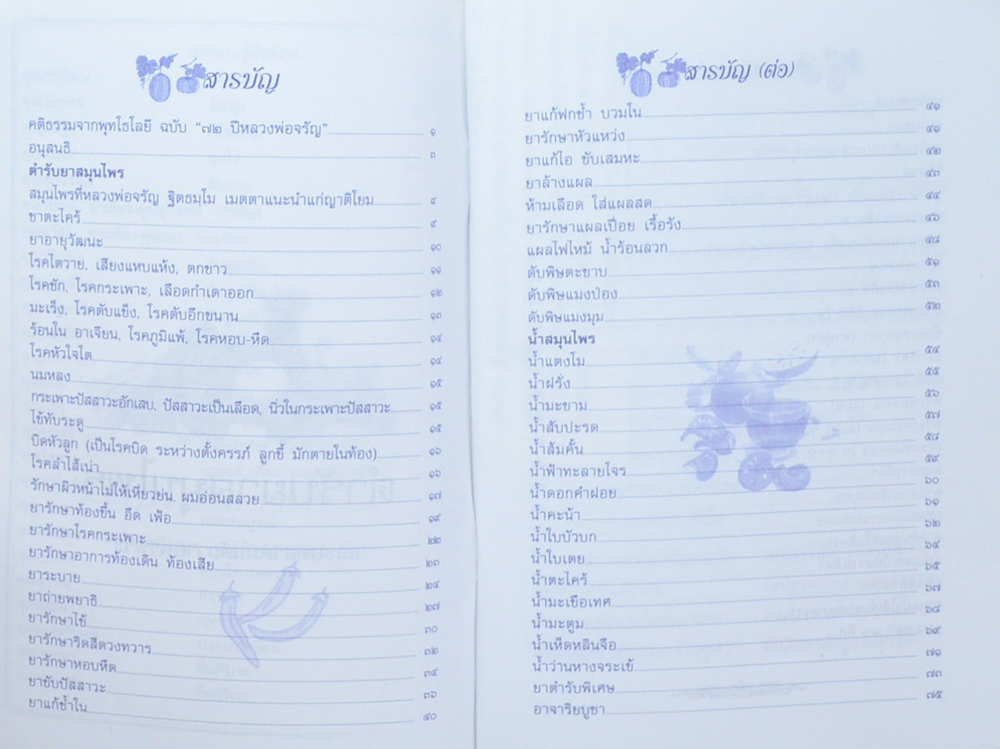 สารบัญ
คติธรรมจากพุทโธโลยี ฉบับ "๗๒ ปีหลวงพ่อจรัญ" ๑
อนุสนธิ ๓
ตำรับยาสมุนไพร
สมุนไพรที่หลวงพ่อจรัญ ฐิตธมฺโม เมตตาแนะนำแก่ญาติโยม ๙
ชาตะไคร้ ๙
ยาอายุวัฒนะ ๑๐
โรคไตวาย, เสียงแหบแห้ง, ตกขาว ๑๑
โรคชัก, โรคกระเพาะ, เลือดกำเดาออก ๑๒
มะเร็ง, โรคตับแข็ง, โรคตับอีกขนาน ๑๓
ร้อนใน อาเจียน, โรคภูมิแพ้, โรคหอบ-หืด ๑๔
โรคหัวใจโต ๑๔
นมหลง ๑๕
กระเพาะปัสสาวะอักเสบ, ปัสสาวะเป็นเลือด, นิ่วในกระเพาะปัสสาวะ ๑๕
ไข้ทับระดู ๑๕
บิดหัวลูก (เป็นโรคบิด ระหว่างตั้งครรภ์ ลูกขี้ มักตายในท้อง) ๑๖
โรคลำไส้เน่า ๑๖
รักษาผิวหน้าไม่ให้เหี่ยวย่น ผมอ่อนสลวย ๑๗
ยารักษาท้องขึ้น อืด เฟ้อ ๑๙
ยารักษาโรคกระเพาะ ๒๒
ยารักษาอาการท้องเดิน ท้องเสีย ๒๓
ยาระบาย ๒๔
ยาถ่ายพยาธิ ๒๗
ยารักษาไข้ ๓๐
ยารักษาริดสีดวงทวาร ๓๒
ยารักษาหอบหืด ๓๔
ยาขับปัสสาวะ ๓๖
ยาแก้ช้ำใน ๔๐
สารบัญ (ต่อ)
ยาแก้ฟกช้ำ บวมโน ๔๑
ยารักษาหัวแหว่ง ๔๑
ยาแก้ไอ ขับเสมหะ ๔๒
ยาล้างแผล ๔๓
ห้ามเลือด ใส่แผลสด ๔๔
ยารักษาแผลเปื่อย เรื้อรัง ๔๖
แผลไฟไหม้ น้ำร้อนลวก ๔๘
ดับพิษตะขาบ ๕๑
ดับพิษแมงป่อง ๕๓
ดับพิษแมงมุม ๕๒
น้ำสมุนไพร
น้ำแตงโม ๕๔
น้ำฝรั่ง ๕๕
น้ำมะขาม ๕๖
น้ำสับปะรด ๕๗
น้ำส้มคั้น ๕๘
น้ำฟ้าทะลายโจร ๕๙
น้ำดอกคำฝอย ๖๐
น้ำคะน้า ๖๑
น้ำใบบัวบก ๖๒
น้ำใบเตย ๖๔
น้ำตะไคร้ ๖๕
น้ำมะเขือเทศ ๖๗
น้ำมะตูม ๖๘
น้ำเห็ดหลินจือ ๖๙
น้ำว่านหางจระเข้ ๗๑
ยาตำรับพิเศษ ๗๓
อาจาริยบูชา ๗๕